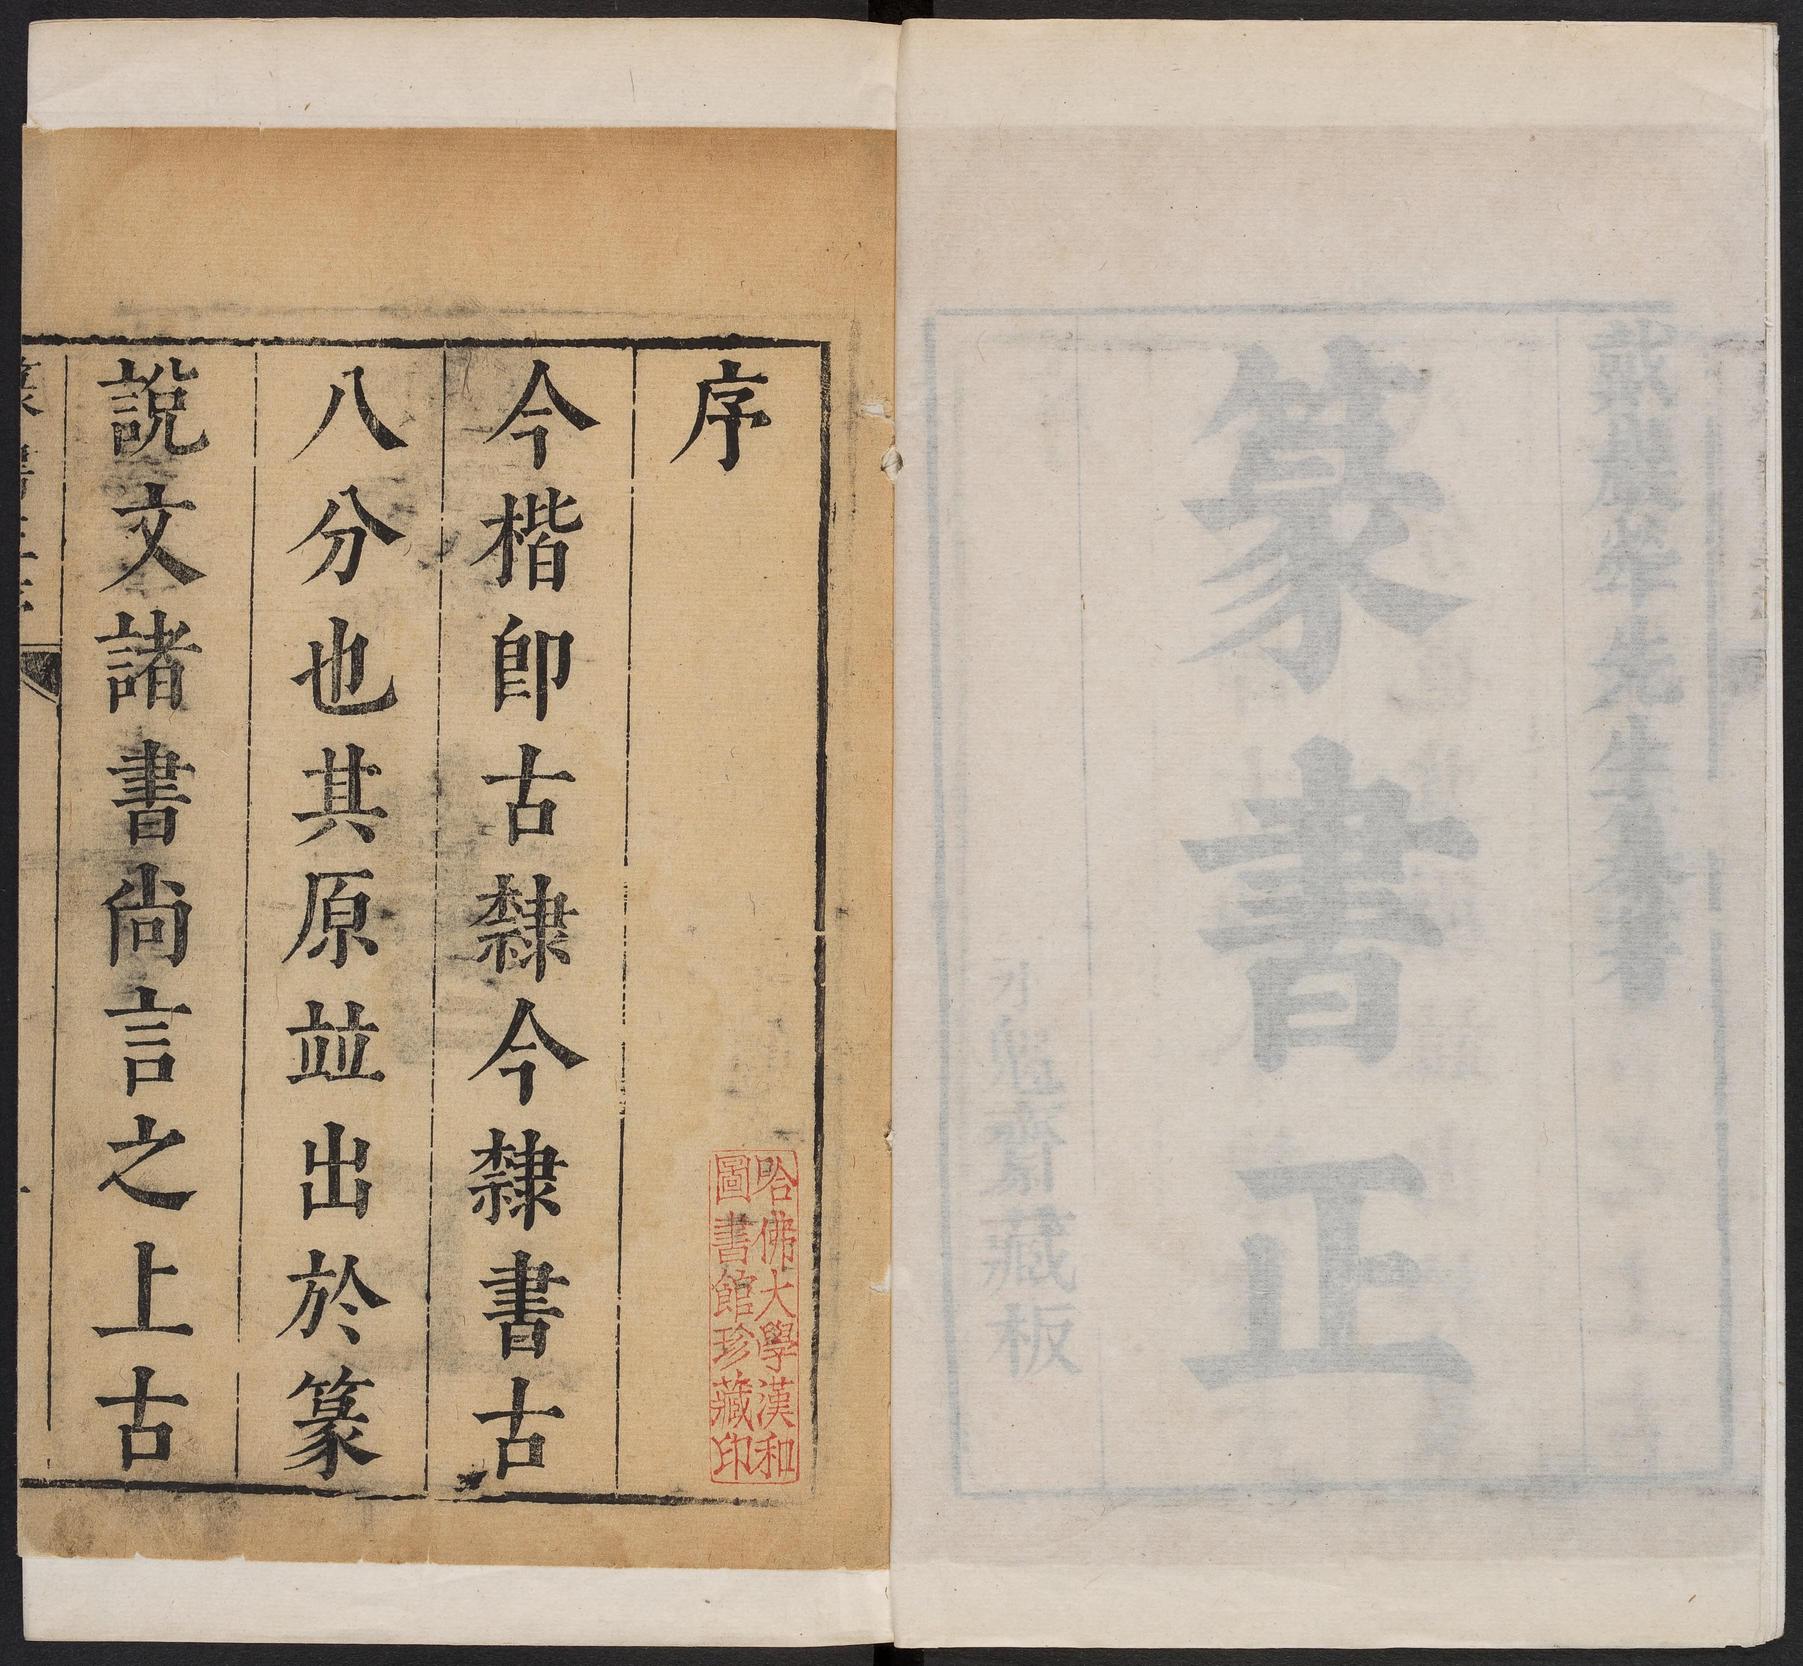 戴巖犖先生著
篆書正
尣跪齋藏板
序
今楷卽古隸今隸書古
八分也其原並出於篆
說文諸書尙言之上古
篆書正序
哈佛大學漢和
圖書館珍藏印